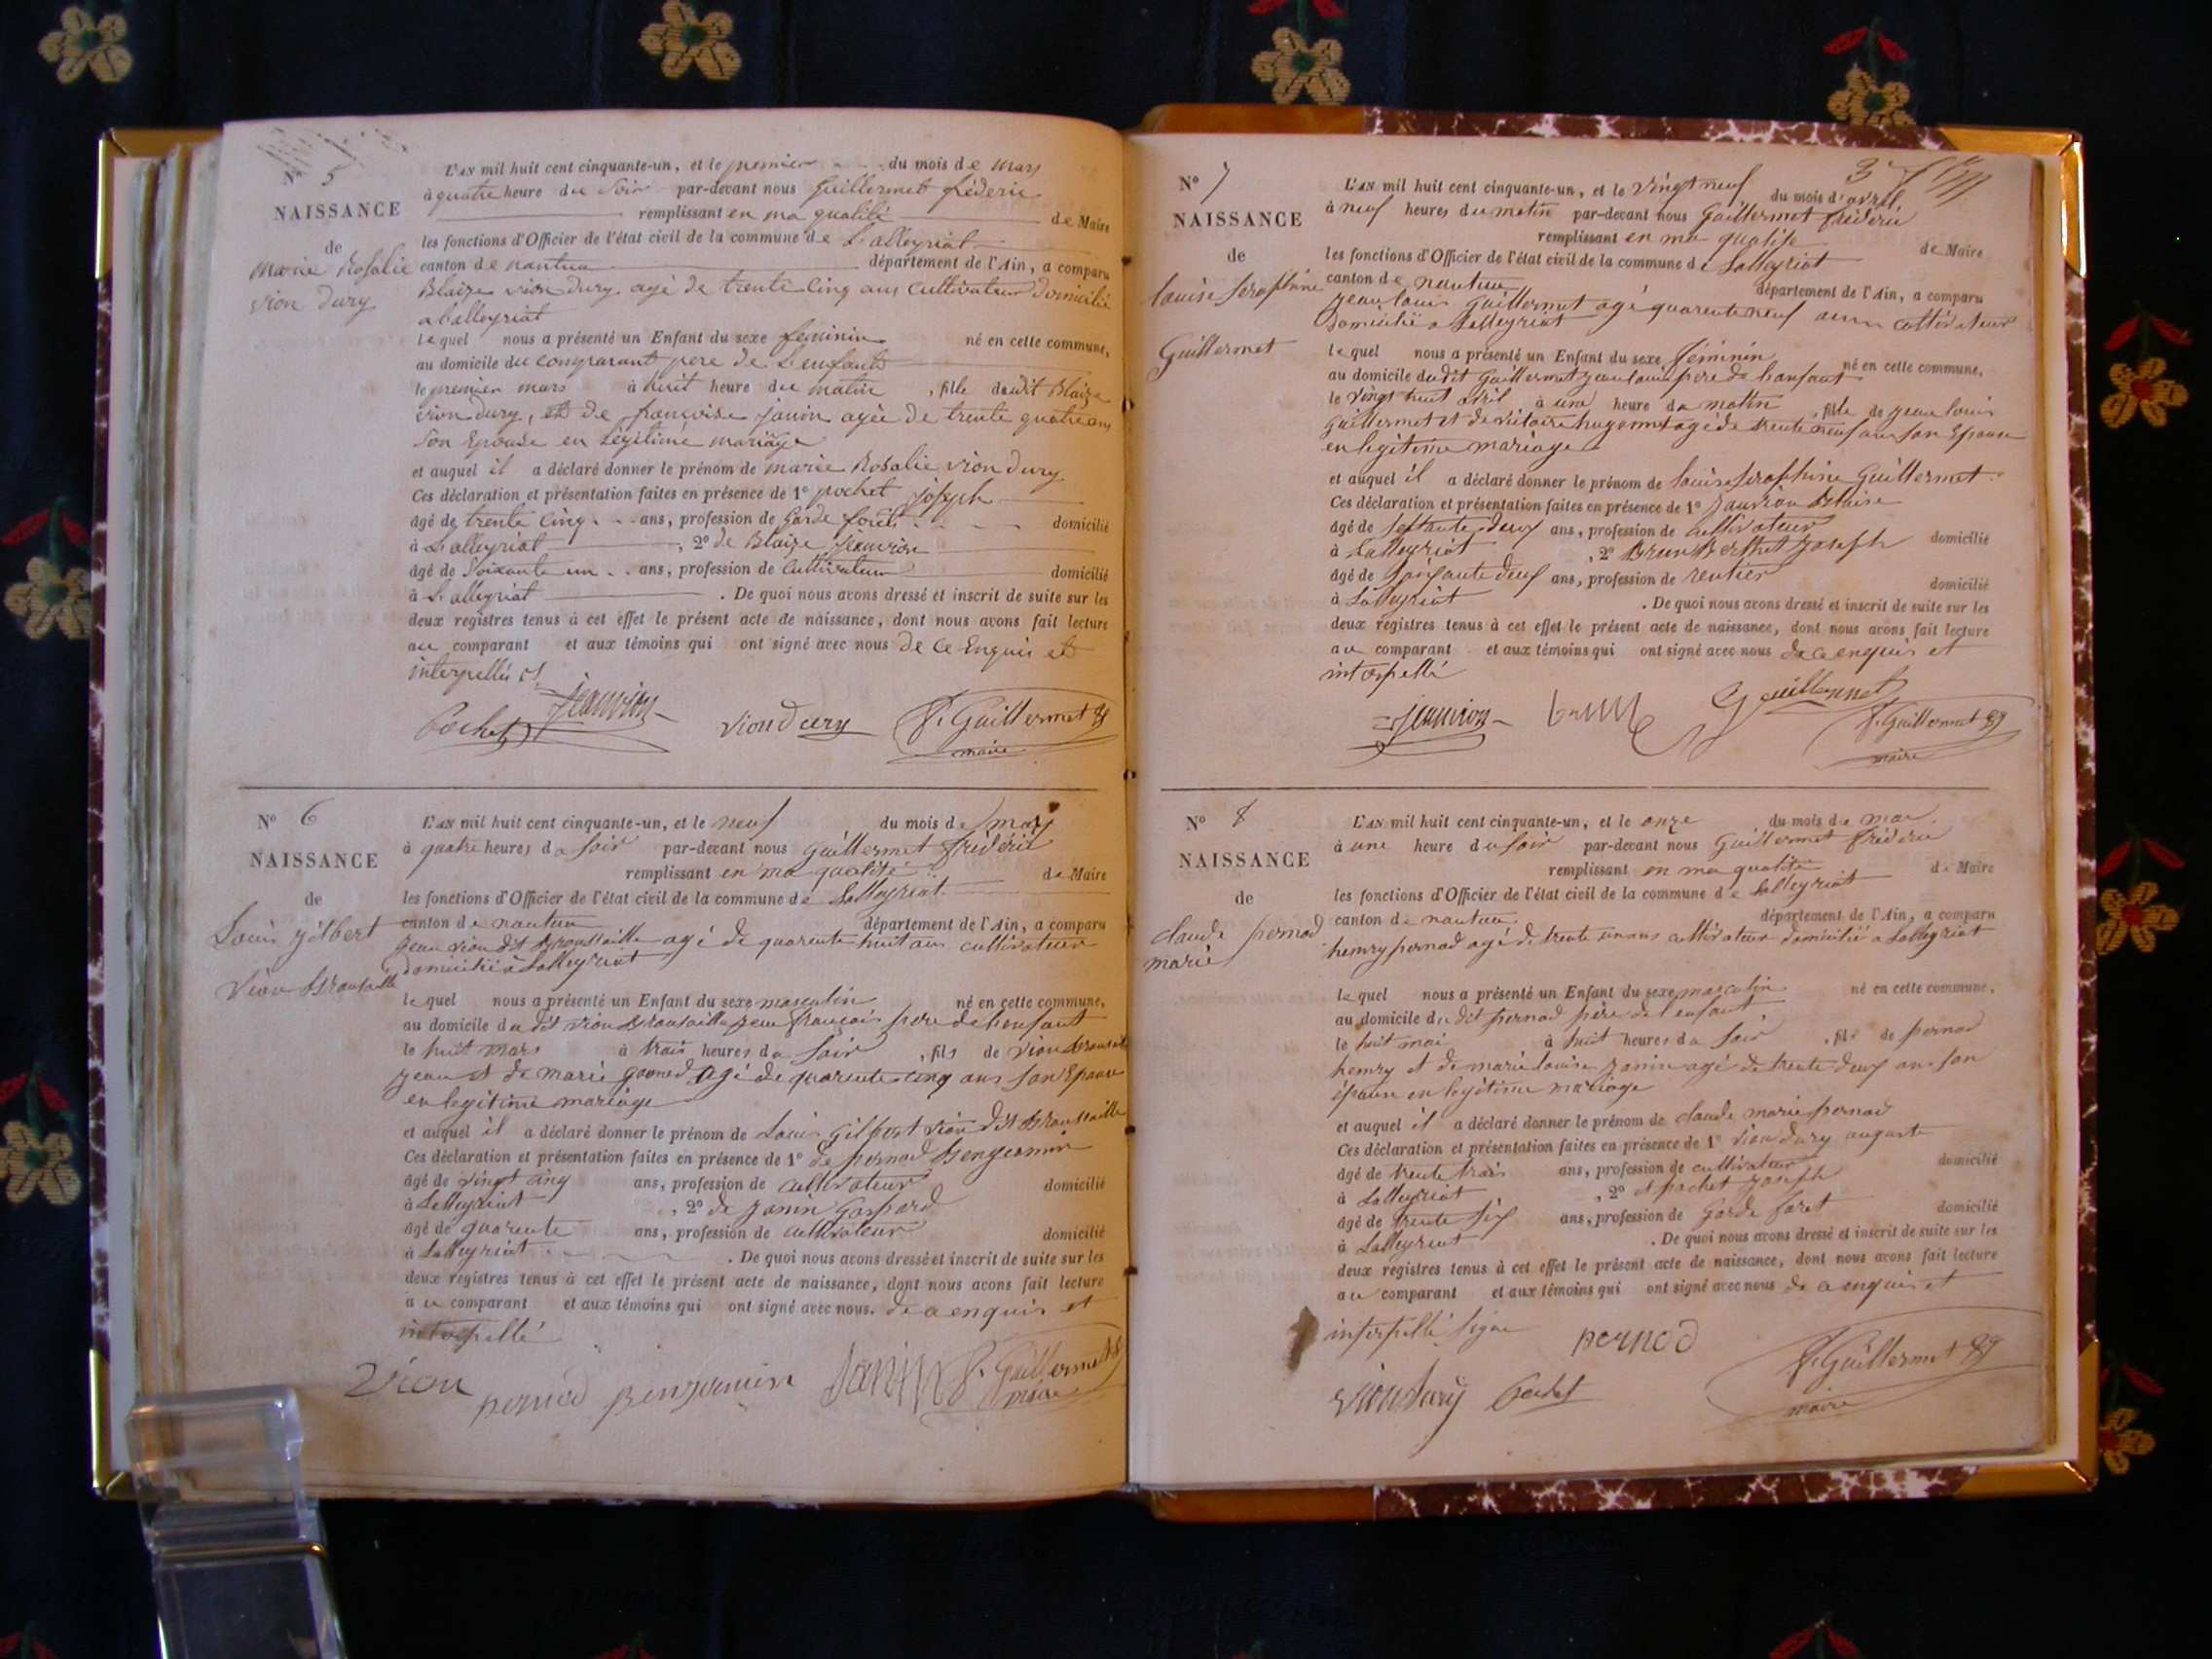 N° 5
NAISSANCE
de
Marie Rosalie
vion dury
L'AN mil huit cent cinquante-un, et le premier du mois de Mars
à quatre heure du Soir par-devant nous Guillermet fréderic
remplissant en ma qualité de Maire
les fonctions d'Officier de l'état civil de la commune de L'alleyriat
canton de nantua département de l'Ain, a comparu
Blaize vion dury agé de trente cinq ans Cultivateur domicilié
a L'alleyriat
lequel nous a présenté un Enfant du sexe feminin né en cette commune,
au domicile du comparant pere de L'enfant
le premier mars à huit heure du matin , fille dudit Blaize
vion Dury, et de françoise janin agée de trente quatre ans
Son Epouse en Légitime mariage
et auquel il a déclaré donner le prénom de marie Rosalie vion dury
Ces déclaration et présentation faites en présence de 1° pochet joseph
âgé de trente cinq ans, profession de Garde forêt domicilié
à L'alleyriat , 2° de Blaize jeanvion
âgé de Soixante un ans, profession de Cultivateur domicilié
à L'alleyriat . De quoi nous avons dressé et inscrit de suite sur les
deux registres tenus à cet effet le présent acte de naissance, dont nous avons fait lecture
au comparant et aux témoins qui ont signé avec nous de Ce Enquis et
interpellés
Jeanvion
Pochet Vion Dury F. Guillermet
maire
N° 6
NAISSANCE
de
Louis gilbert
Vion Broussaille
L'AN mil huit cent cinquante-un, et le neuf du mois de mars
à quatre heures da soir par-devant nous Guillermet frédéric
remplissant en ma qualité de Maire
les fonctions d'Officier de l'état civil de la commune de Lalleyriat
canton de nantua département de l'Ain, a comparu
jean vion dit Broussaille agé de quarente huit ans cultivateur
domicilié à Lalleyriat
lequel nous a présenté un Enfant du sexe masculin né en cette commune,
au domicile du dit vion Broussaille jean françois père de lenfant
le huit mars à trois heures da Soir , fils de vion Broussaille
jean et de marie agé de quarente cinq ans son Epouse
en legitime mariage
et auquel il a déclaré donner le prénom de Louis Gilbert vion dit Broussaille
Ces déclaration et présentation faites en présence de 1° de pernod Bengeamin
âgé de vingt cinq ans, profession de cultivateur domicilié
à Lalleyriat , 2° de janin Gaspard
âgé de quarente ans, profession de cultivateur domicilié
à Lalleyriat . De quoi nous avons dressé et inscrit de suite sur les
deux registres tenus à cet effet le présent acte de naissance, dont nous avons fait lecture
au comparant et aux témoins qui ont signé avec nous. de a enquis et
interpellé
Vion pernod Benjamin Janin F. Guillermet
maire
N° 7
NAISSANCE
de
louise Seraphine
Guillermet
L'AN mil huit cent cinquante-un, et le vingt neuf du mois d'avril
à neuf heures du matin par-devant nous Guillermet frédéric
remplissant en ma qualité de Maire
les fonctions d'Officier de l'état civil de la commune de Lalleyriat
canton de nantua département de l'Ain, a comparu
jean louis Guillermet agé quarente neuf ans cultivateur
domicilié a Lalleyriat
lequel nous a présenté un Enfant du sexe féminin né en cette commune,
au domicile dudit Guillermet jean louis père de lanfant
le vingt huit avril à une heure da matin , fille de jean louis
Guillermet et de victoire hugonnet agé de trente neuf ans son Epouse
en legitime mariage
et auquel il a déclaré donner le prénom de louise Seraphine Guillermet
Ces déclaration et présentation faites en présence de 1° janvion Blaise
âgé de septante deux ans, profession de cultivateur domicilié
à Lalleyriat , 2° Brun Berthet joseph
âgé de deux ans, profession de rentier domicilié
à Lalleyriat . De quoi nous avons dressé et inscrit de suite sur les
deux registres tenus à cet effet le présent acte de naissance, dont nous avons fait lecture
au comparant et aux témoins qui ont signé avec nous de a enquis et
interpellé
Jeanvion Guillermet
F. Guillermet
maire
N° 8
NAISSANCE
de
claude pernod
marie
L'AN mil huit cent cinquante-un, et le onze du mois de mai
à une heure du soir par-devant nous Guillermet frédéric
remplissant en ma qualité de Maire
les fonctions d'Officier de l'état civil de la commune de Lalleyriat
canton de nantua département de l'Ain, a comparu
henry pernod agé de trente un ans cultivateur domicilié a Lalleyriat
lequel nous a présenté un Enfant du sexe masculin né en cette commune,
au domicile du dit pernod père de l'enfant
le huit mai à huit heures da Soir , fils de pernod
henry et de marie louise janin agé de trente deux ans son
épouse en legitime mariage
et auquel il a déclaré donner le prénom de claude marie pernod
Ces déclaration et présentation faites en présence de 1° vion dury auguste
âgé de trente trois ans, profession de cultivateur domicilié
à Lalleyriat , 2° et pochet joseph
âgé de trente six ans, profession de Garde foret domicilié
à Lalleyriat . De quoi nous avons dressé et inscrit de suite sur les
deux registres tenus à cet effet le présent acte de naissance, dont nous avons fait lecture
au comparant et aux témoins qui ont signé avec nous de a enquis et
interpellé signe pernod
vion dury Pochet F. Guillermet
maire